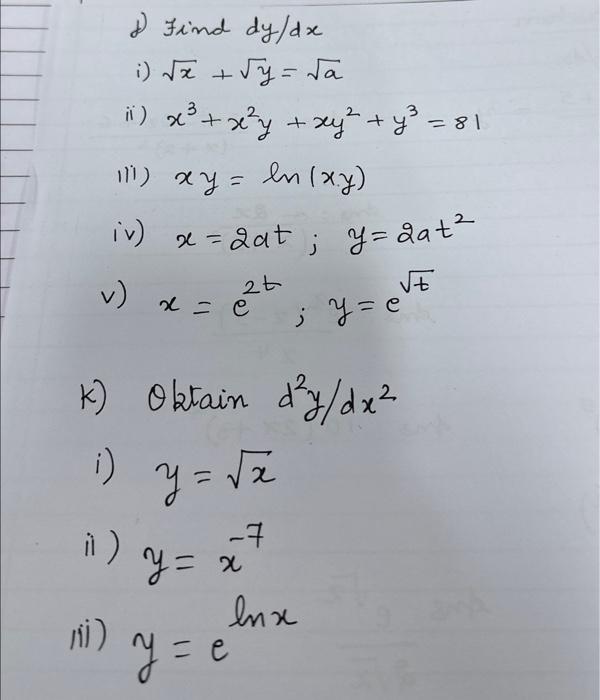 j) Find dy/dx
i) √x + √y = √a
ii) x³ + x²y + xy² + y³ = 81
iii) xy = ln(xy)
iv) x = 2at ; y = 2at²
v) x = e^2t ; y = e^√t
k) Obtain d²y/dx²
i) y = √x
ii) y = x⁻⁷
iii) y = e^ln x